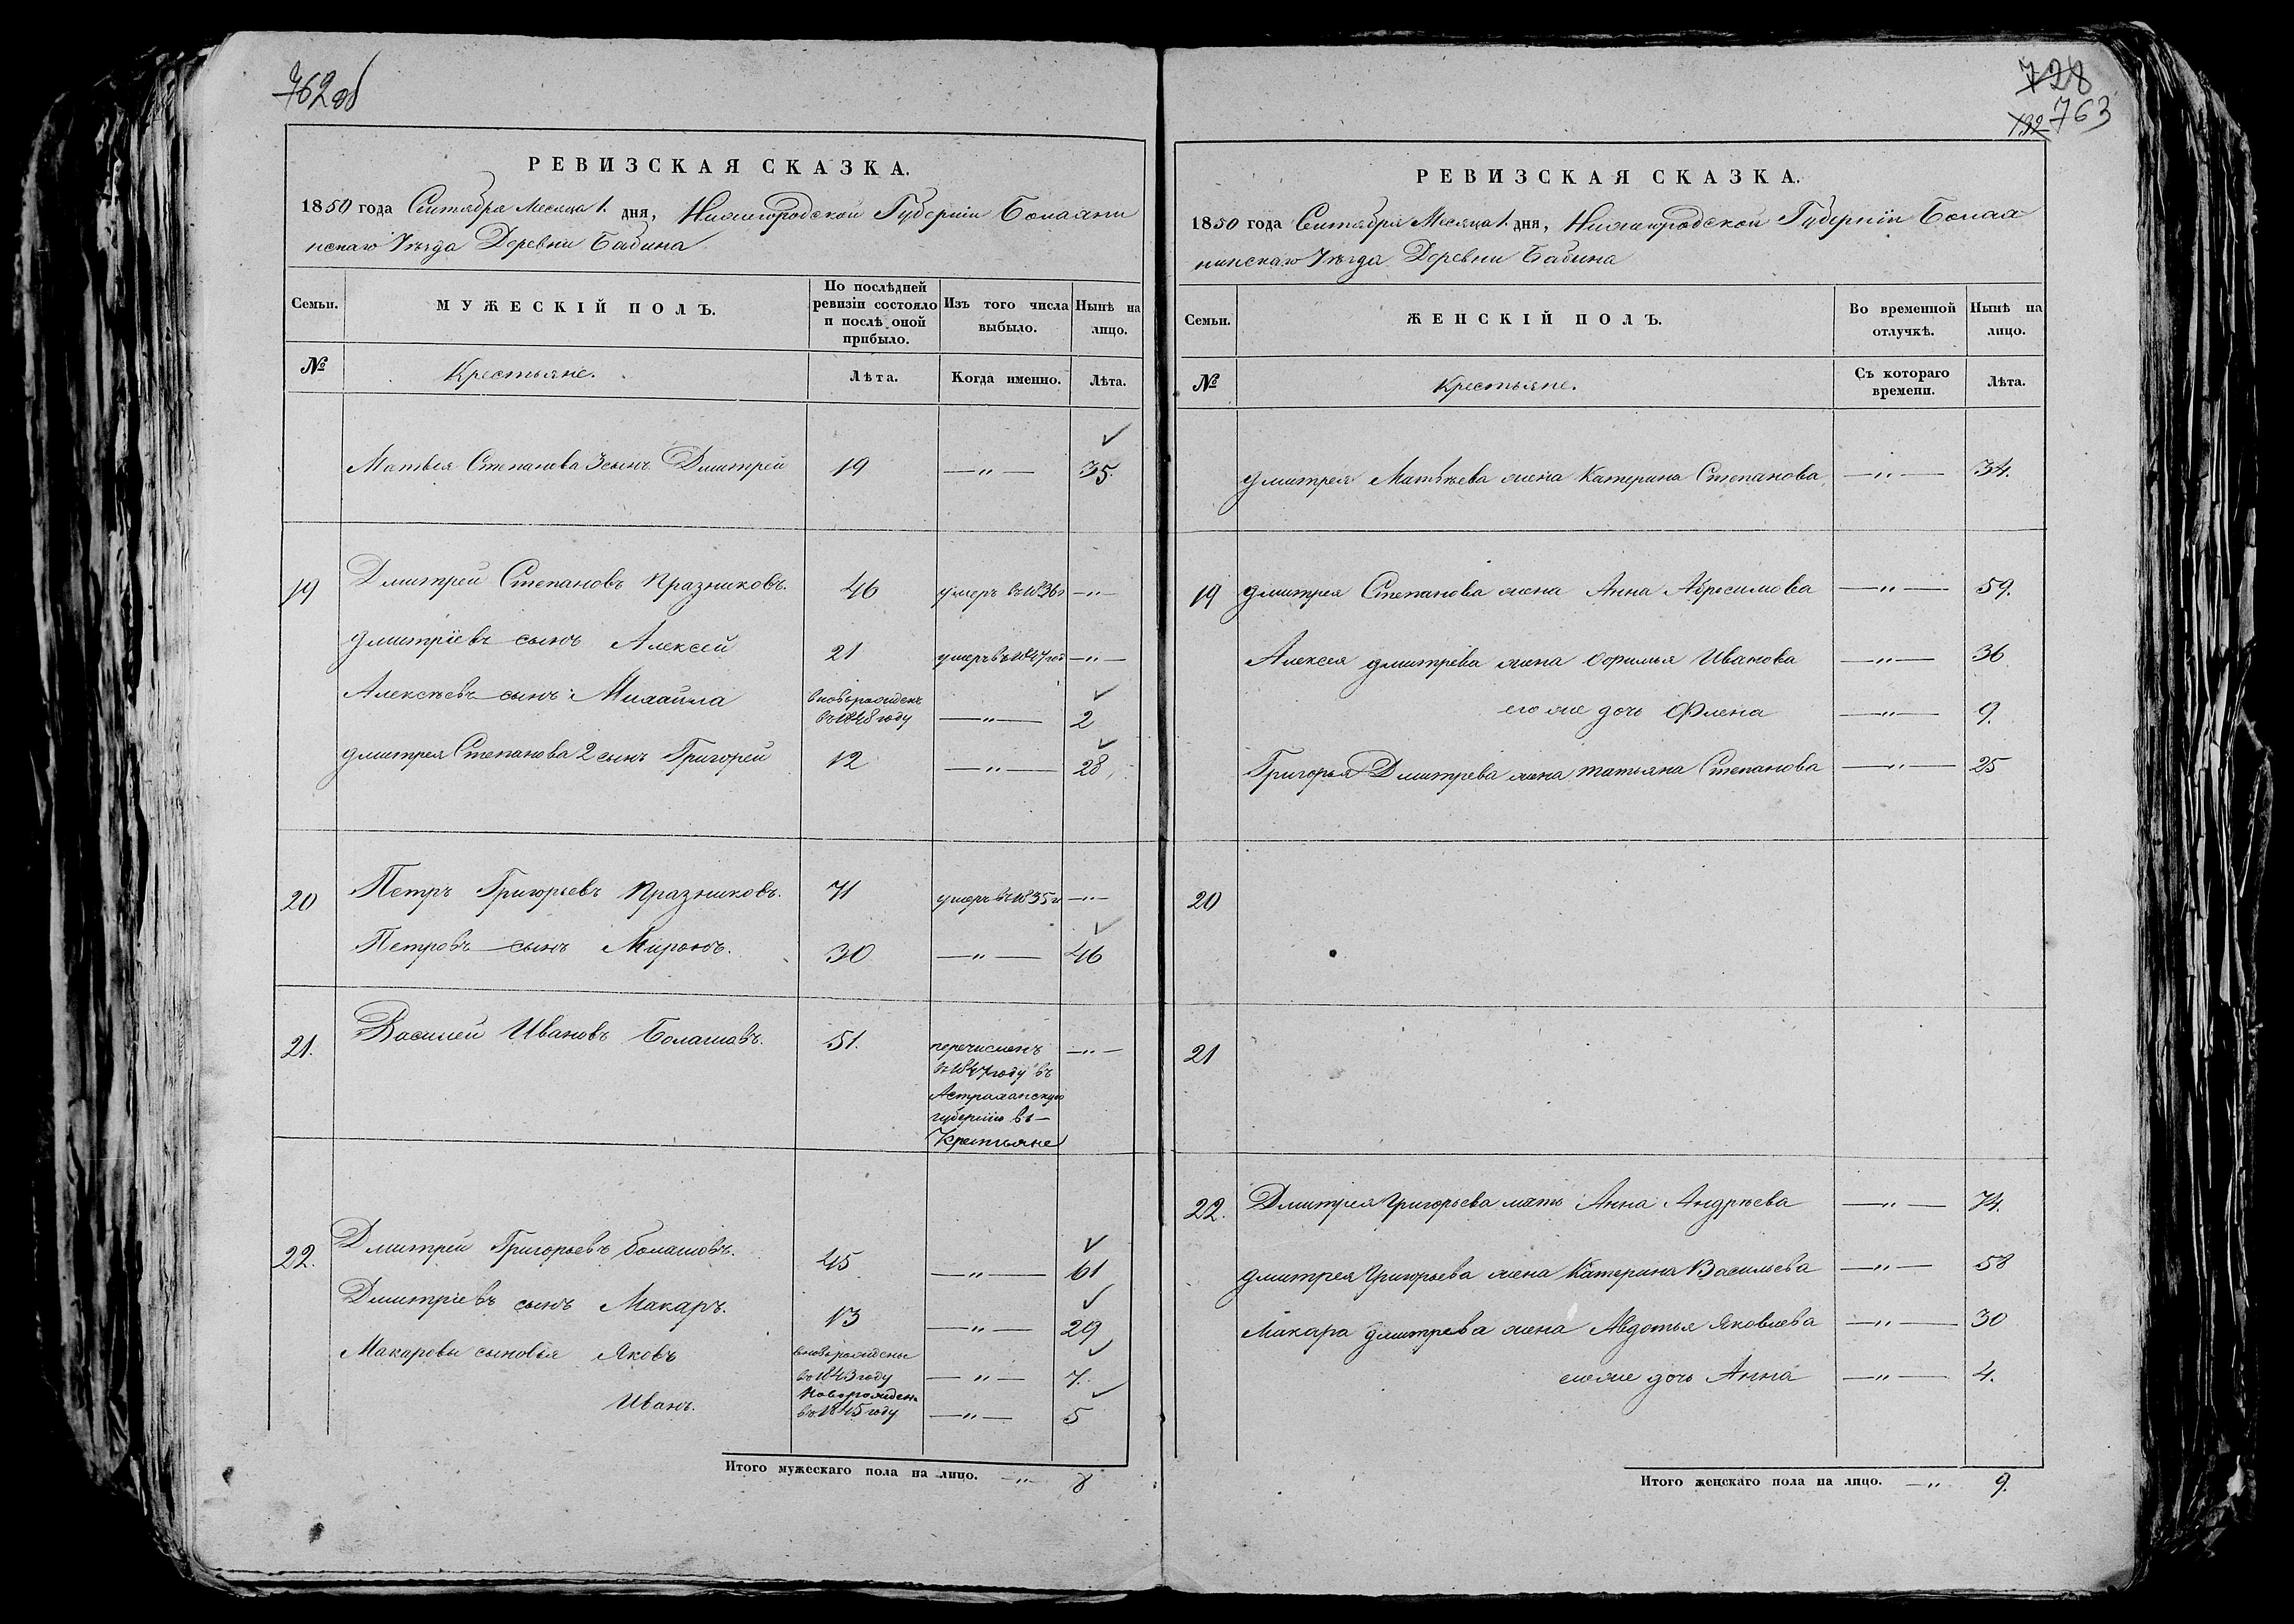 762об
РЕВИЗСКАЯ СКАЗКА.
1850 года Сентября Месяца 1. дня, Нижегородской Губерніи Балахни
нскаго Уѣзда Деревни Бабина
Семьи. МУЖЕСКІЙ ПОЛЪ. По послѣдней ревизіи состояло и послѣ оной прибыло. Изъ того числа выбыло. Нынѣ на лицо.
№ Крестьяне. Лѣта. Когда именно. Лѣта.
Матвея Степанова 3 сынъ Дмитрей 19 —"— 35.
19 Дмитрей Степановъ Празниковъ. 46 умеръ въ 1836 г —"—
Дмитріевъ сынъ Алексей 21 умеръ въ 1847 го —"—
Алексѣевъ сынъ Михайла вновьрожденъ
въ 1848 году —"— 2
Дмитрея Степанова 2 сынъ Григорей 12 —"— 28.
20 Петръ Григорьевъ Празниковъ. 71 умеръ въ 1835 г —"—
Петровъ сынъ Миронъ. 30 —"— 46
21. Василей Ивановъ Болашовъ. 51. перечисленъ —"—
въ 1847 году въ
Астраханскую
губернію въ —
Крестьяне
22. Дмитрей Григорьевъ болашовъ. 45 —"— 61
Дмитріевъ сынъ Макаръ. 13 —"— 29
Макаровы сыновья Яковъ вновьрожденъ
въ 1843 году —"— 7.
Иванъ. Новорожденъ
въ 1845 году —"— 5
Итого мужескаго пола на лицо. —"— 8
728
132 763
РЕВИЗСКАЯ СКАЗКА.
1850 года Сентября Месяца 1. дня, Нижегородской Губерніи Балах
нинскаго Уѣзда Деревни Бабина
Семьи. ЖЕНСКІЙ ПОЛЪ. Во временной отлучкѣ. Нынѣ на лицо.
№ Крестьяне. Съ котораго времени. Лѣта.
Дмитрея Матвѣева жена Катерина Степанова —"— 34.
19 Дмитрея Степанова жена Анна Абросимова —"— 59.
Алексея Дмитрева жена Софилья Иванова —"— 36
его же дочь Флена —"— 9.
Григорья Дмитрева жена татьяна Степанова —"— 25
20
21
22. Дмитрея Григорьева мать Анна Андрѣева —"— 74.
Дмитрея Григорьева жена Катерина Васильева —"— 58
Макара Дмитрева жена Авдотья Яковлева —"— 30
его же дочь Анна —"— 4.
Итого женскаго пола на лицо. —"— 9.